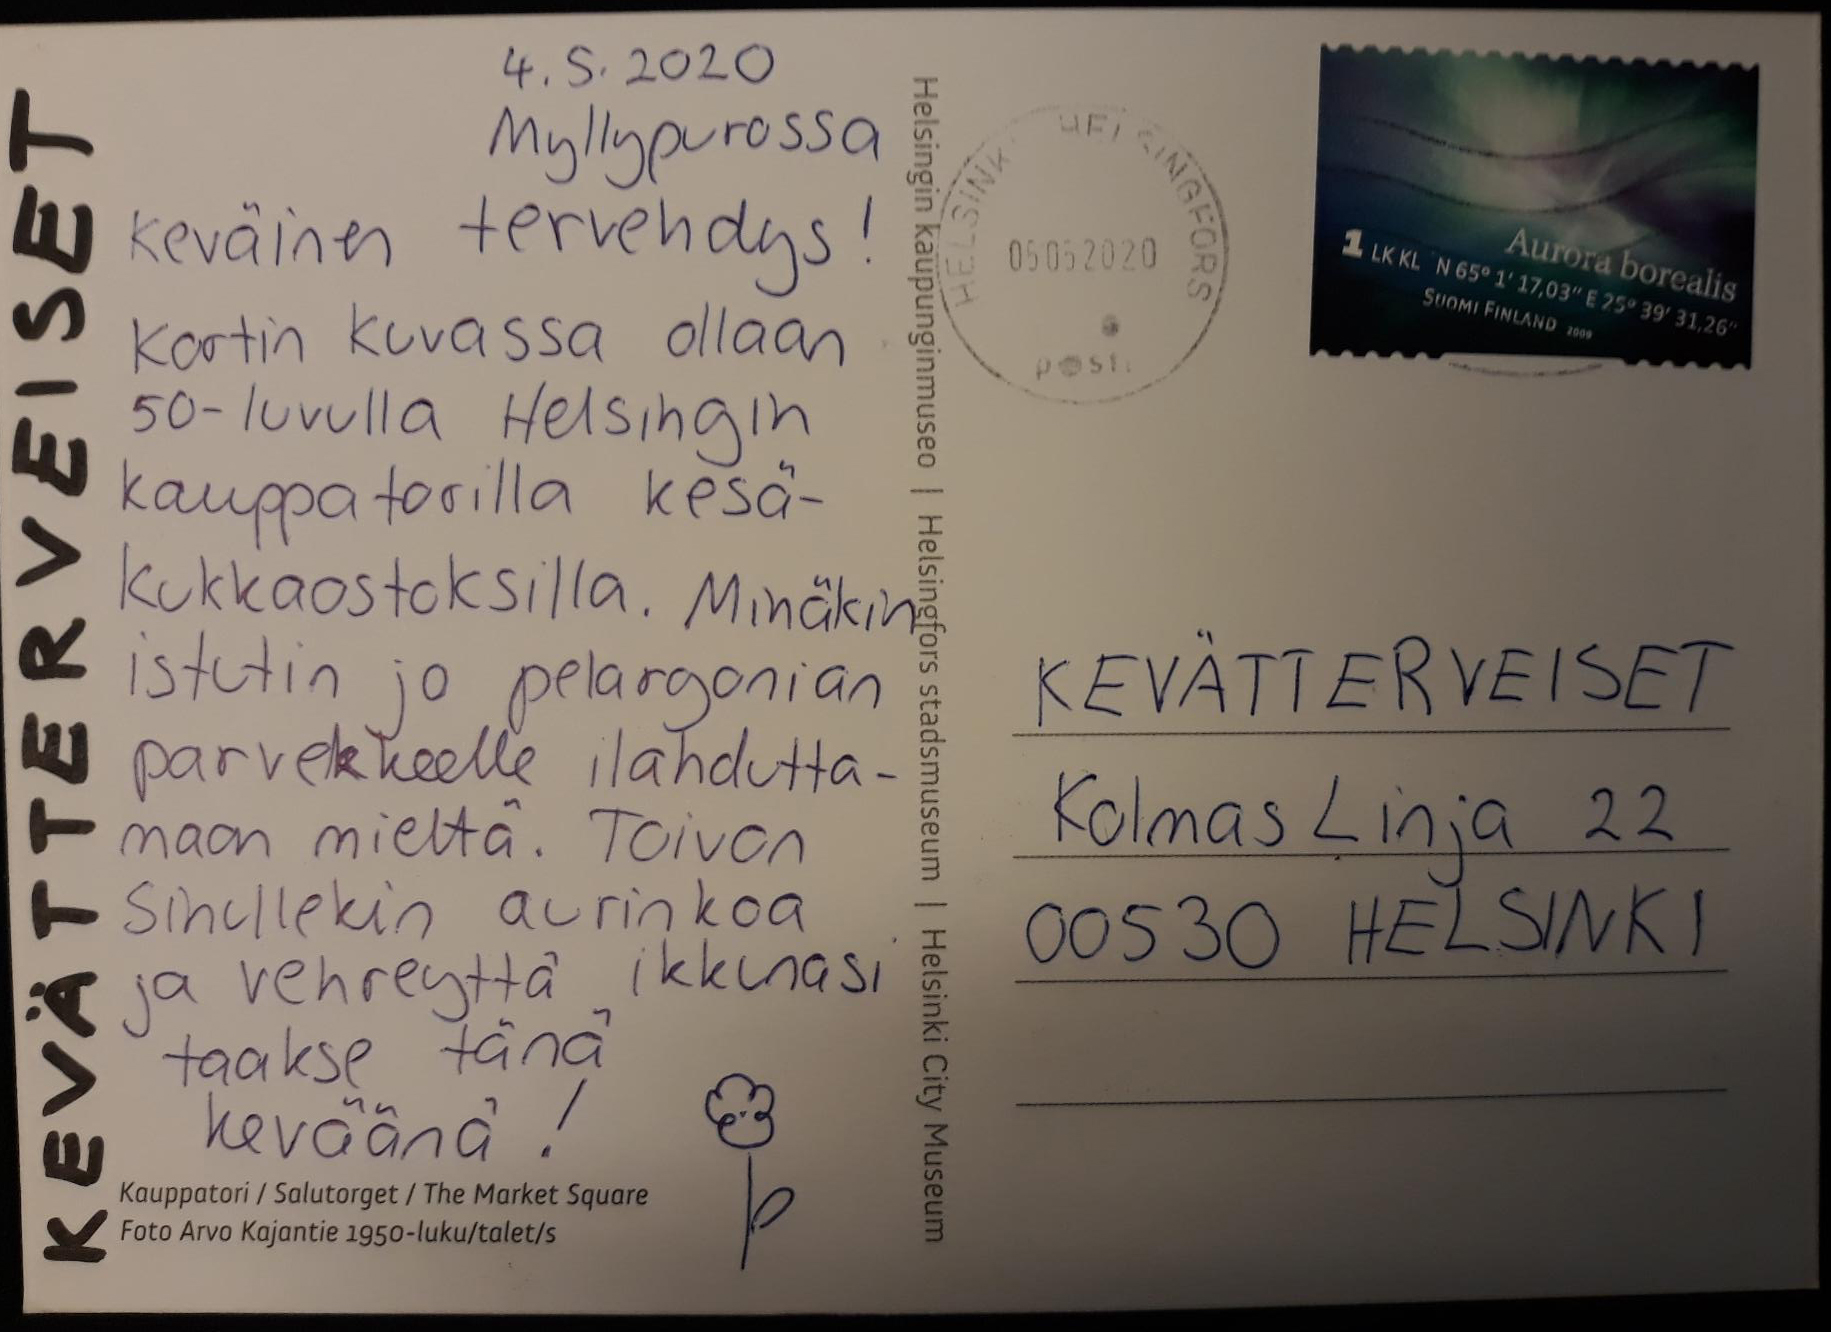 KEVÄTTERVEISET
4.5.2020
Myllypurossa
Keväinen tervehdys!
Kortin kuvassa ollaan
50-luvulla Helsingin
kauppatorilla kesä-
kukkaostoksilla. Minäkin
istutin jo pelargonian
parvekkeelle ilahdutta-
maan mieltä. Toivon
Sinullekin aurinkoa
ja vehreyttä ikkunasi
taakse tänä
keväänä!
Kauppatori / Salutorget / The Market Square
Foto Arvo Kajantie 1950-luku/talet/s
Helsingin kaupunginmuseo | Helsingfors stadsmuseum | Helsinki City Museum
HELSINKI HELSINGFORS
05052020
posti
Aurora borealis
1 LK KL N 65° 1' 17,03" E 25° 39' 31,26"
SUOMI FINLAND 2009
KEVÄTTERVEISET
Kolmas Linja 22
00530 HELSINKI